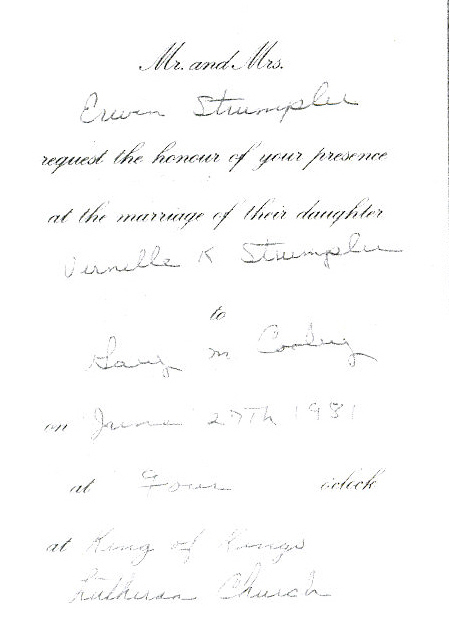 Mr. and Mrs.
Erwin Strumpler
request the honour of your presence
at the marriage of their daughter
Vernelle K Strumpler
to
Gary M Cooley
on June 27Th 1981
at Four o'clock
at King of Kings
Lutheran Church